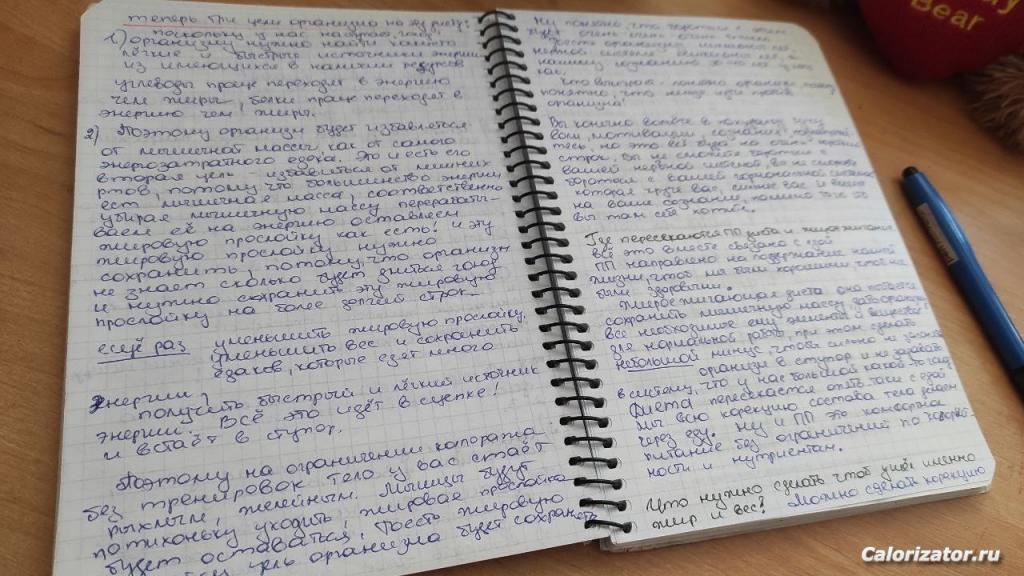 теперь три цели организма на эту диету:
поскольку у нас наступает голод
1) организму нужно найти какие-то
лёгкие и быстрые источники энергии
из имеющихся в наличии ресурсов
углеводы проще переходят в энергию
чем жиры, белки проще переходят в
энергию чем жиры.
2) Поэтому организм будет избавляться
от мышечной массы, как от самого
энергозатратного едока. Это и есть его
вторая цель - избавиться от лишних
ртов, потому что большинство энергии
ест мышечная масса, соответственно
убирая мышечную массу перерабаты-
ваем её на энергию оставляем
жировую прослойку как есть! и эту
жировую прослойку нужно
сохранить, потому, что организм
не знает сколько будет длиться голод
и нужно сохранить эту жировую
прослойку на более долгий срок.
ещё раз уменьшить жировую прослойку,
уменьшить вес и сохранить
едаков, которые едят много
энергии!
получить быстрый и лёгкий источник
энергии. Всё это идёт в сцепке!
и встаёт в ступор.
Поэтому на ограничении калоража
без тренировок тело у вас стаёт
рыхлым, желейным. Мышцы будут
потихоньку уходить, жировая прослойка
будет оставаться, тоесть жировую
цель организма будет сохранять
Ну понятно что бороться с этим
будет очень очень очень сложно
тоесть
нашему сознанию
как.
понятно, что нельзя идти против
организма!
Вы конечно
вам, мотивации, сознания,
тесь, но это всё будет на очень короткий
строк. Вы не сможете бороться с
вашей нервной системой, вы не сможете
бороться с вашей гормональной системой
которая круче вас, сильнее вас и влияет
на ваше сознание, помимо того что
вы там себе хотите.
Где пересекаются ПП диета и жиросжигание
всё это вместе связано с едой
ПП направлено на поддержание нашей
жизни, чтоб мы были хорошими, чтоб мы
были здоровыми.
Жиросжигающая диета она пытается
сохранить мышечную массу,
все необходимые ему элементы и вещества
для нормальной работы, при этом сделать
небольшой минус, чтобы сильно не загонять
организм в ступор и не заработать
в систему, что у нас большой какой-то голод
Диета пересекается опять таки с едой
мы всю корекцию состава тела делаем
через еду, ну и ПП это комфортное
питание без ограничений по калорий-
ности и нутриентам.
Что нужно сделать чтоб ушёл именно
жир и вес? Можно сделать корекцию
Bear
Calorizator.ru